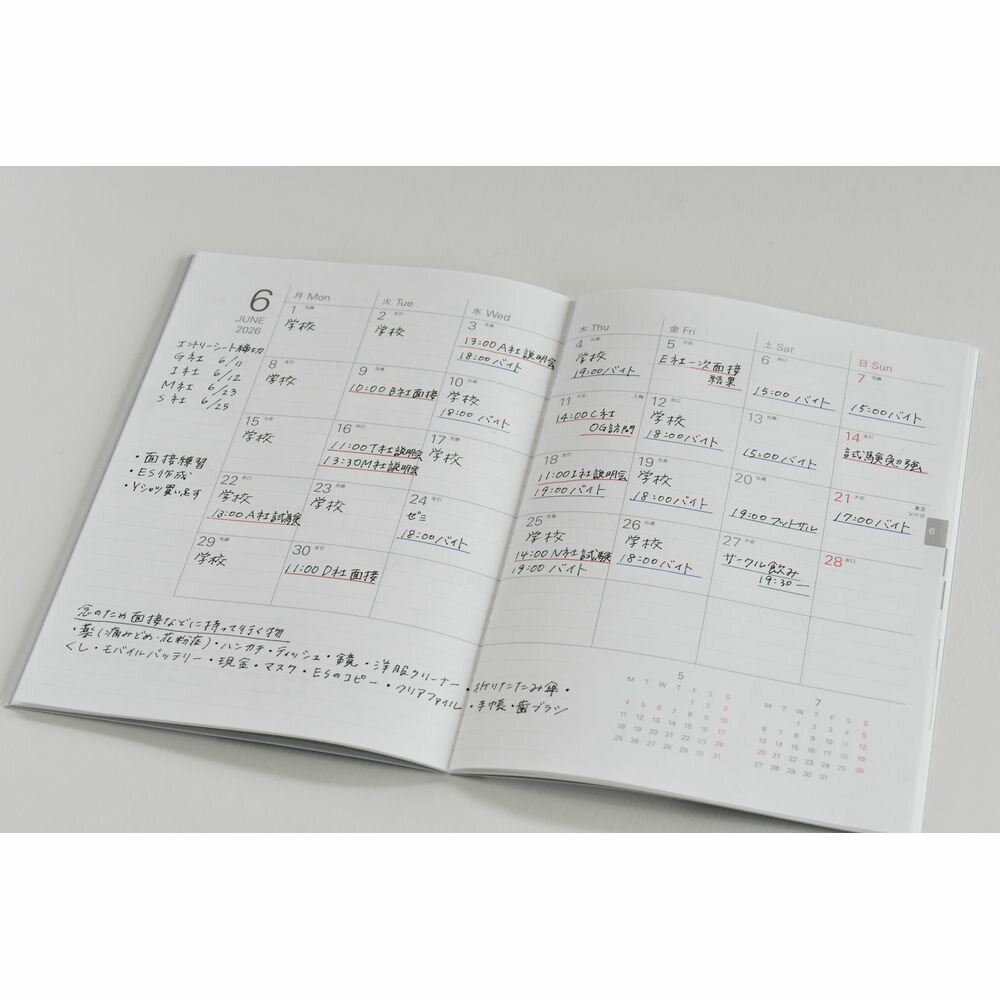 6
JUNE
2026
月 Mon
火 Tue
水 Wed
木 Thu
金 Fri
土 Sat
日 Sun
エントリーシート締切
G社 6/11
I社 6/12
M社 6/23
S社 6/25
・面接練習
・ES作成
・Yシャツ買い足す
1 先勝
学校
2 友引
学校
3 先負
13:00 A社説明会
18:00 バイト
4 仏滅
学校
19:00 バイト
5 大安
E社一次面接
結果
6 赤口
15:00 バイト
7 先勝
15:00 バイト
8 友引
学校
9 先負
10:00 B社面接
10 仏滅
学校
18:00 バイト
11 大安 入梅
14:00 C社
OG訪問
12 赤口
学校
18:00 バイト
13 先勝
15:00 バイト
14 友引
試験勉強
15 大安
学校
16 赤口
11:00 T社説明会
13:30 M社説明会
17 先勝
学校
18 友引
11:00 I社説明会
19:00 バイト
19 先負
学校
18:00 バイト
20 仏滅
19:00 フットサル
21 大安 夏至
父の日
17:00 バイト
22 赤口
学校
13:00 A社試験
23 先勝
学校
24 友引
ゼミ
18:00 バイト
25 先負
学校
14:00 N社試験
19:00 バイト
26 仏滅
学校
18:00 バイト
27 大安
サークル飲み
19:30〜
28 赤口
29 先勝
学校
30 友引
11:00 D社面接
6
念のため面接などに持って行く物
・薬(痛みどめ・花粉症)・ハンカチ・ティッシュ・鏡・洋服クリーナー・折りたたみ傘・
くし・モバイルバッテリー・現金・マスク・ESのコピー・クリアファイル・手帳・歯ブラシ
5
M T W T F S S
1 2 3
4 5 6 7 8 9 10
11 12 13 14 15 16 17
18 19 20 21 22 23 24
25 26 27 28 29 30 31
7
M T W T F S S
1 2 3 4 5
6 7 8 9 10 11 12
13 14 15 16 17 18 19
20 21 22 23 24 25 26
27 28 29 30 31